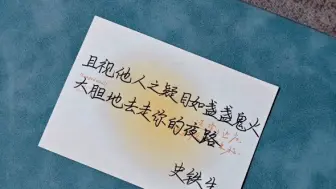 且视他人之疑目如盏盏鬼火
大胆地去走你的夜路
史铁生